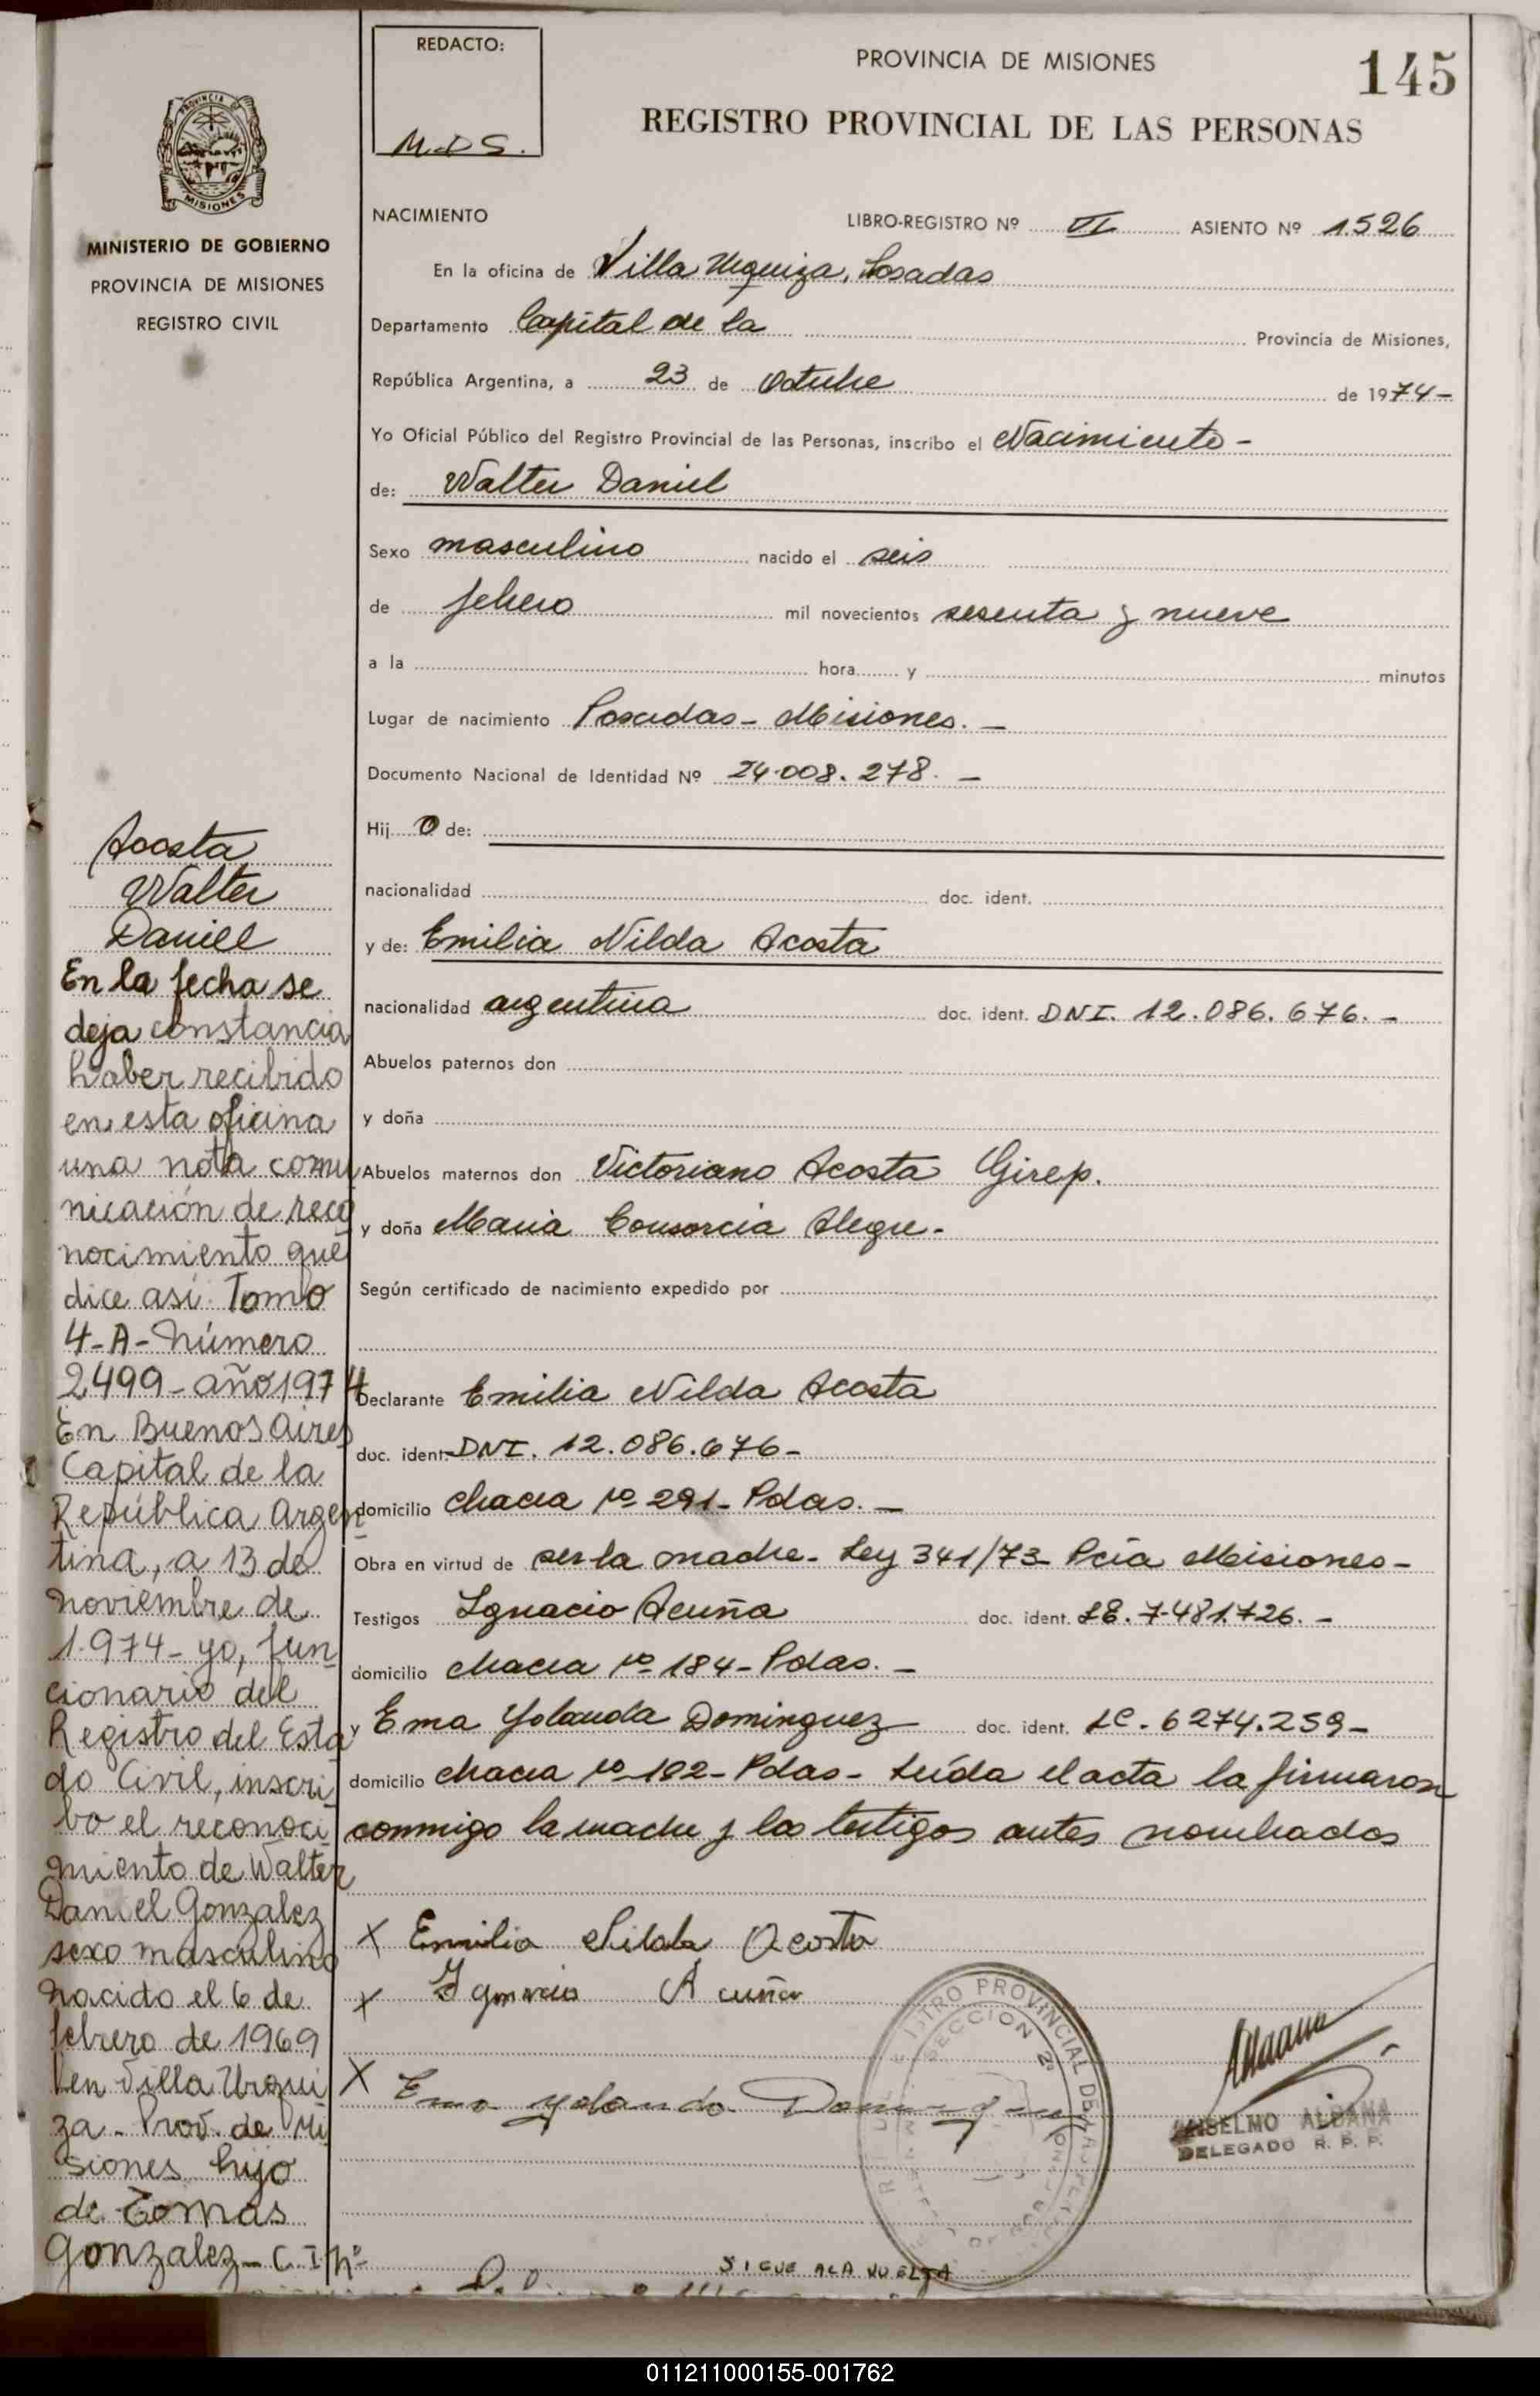 REDACTO:
M.D.S.
PROVINCIA DE MISIONES
145
REGISTRO PROVINCIAL DE LAS PERSONAS
MISIONES
MINISTERIO DE GOBIERNO
PROVINCIA DE MISIONES
REGISTRO CIVIL
NACIMIENTO LIBRO-REGISTRO Nº VI ASIENTO Nº 1.526
En la oficina de Villa Urquiza, Posadas
Departamento Capital de la Provincia de Misiones,
República Argentina, a 23 de Octubre de 1974-
Yo Oficial Público del Registro Provincial de las Personas, inscribo el Nacimiento-
de: Walter Daniel
Sexo masculino nacido el seis
de febrero mil novecientos sesenta y nueve
a la hora y minutos
Lugar de nacimiento Posadas - Misiones. -
Documento Nacional de Identidad Nº 24.008.278. -
Hij o de:
nacionalidad doc. ident.
y de: Emilia Nilda Acosta
nacionalidad argentina doc. ident. DNI. 12.086.676. -
Abuelos paternos don
y doña
Abuelos maternos don Victoriano Acosta Girep.
y doña Maria Consorcia Alegre-
Según certificado de nacimiento expedido por
Declarante Emilia Nilda Acosta
doc. ident. DNI. 12.086.676-
domicilio chacra nº 291- Pdas. -
Obra en virtud de ser la madre- Ley 341/73- Pcia Misiones-
Testigos Ignacio Acuña doc. ident. LE. 7.481.726. -
domicilio chacra nº 184- Pdas. -
y Ema Yolanda Dominguez doc. ident. LC. 6274.259-
domicilio chacra nº 192- Pdas- Leída el acta la firmaron
conmigo la madre y los testigos antes nombrados
X Emilia Nilda Acosta
X Ignacio Acuña
X Ema Yolanda Dominguez
REGISTRO PROVINCIAL DE LAS
SECCION 2ª
Aldana
ANSELMO ALDANA
DELEGADO R. P. P.
SIGUE A LA VUELTA
Acosta
Walter
Daniel
En la fecha se
deja constancia
haber recibido
en esta oficina
una nota comu
nicación de reco
nocimiento que
dice asi. Tomo
4-A- Número
2499- año 1974
En Buenos Aires
Capital de la
República Argen
tina, a 13 de
noviembre de
1.974- yo, fun
cionario del
Registro del Esta
do Civil, inscri
bo el reconoci
miento de Walter
Daniel Gonzalez
sexo masculino
nacido el 6 de
febrero de 1969
en Villa Urqui
za- Prov. de Mi
siones hijo
de Tomas
Gonzalez- C.I. Nº
011211000155-001762